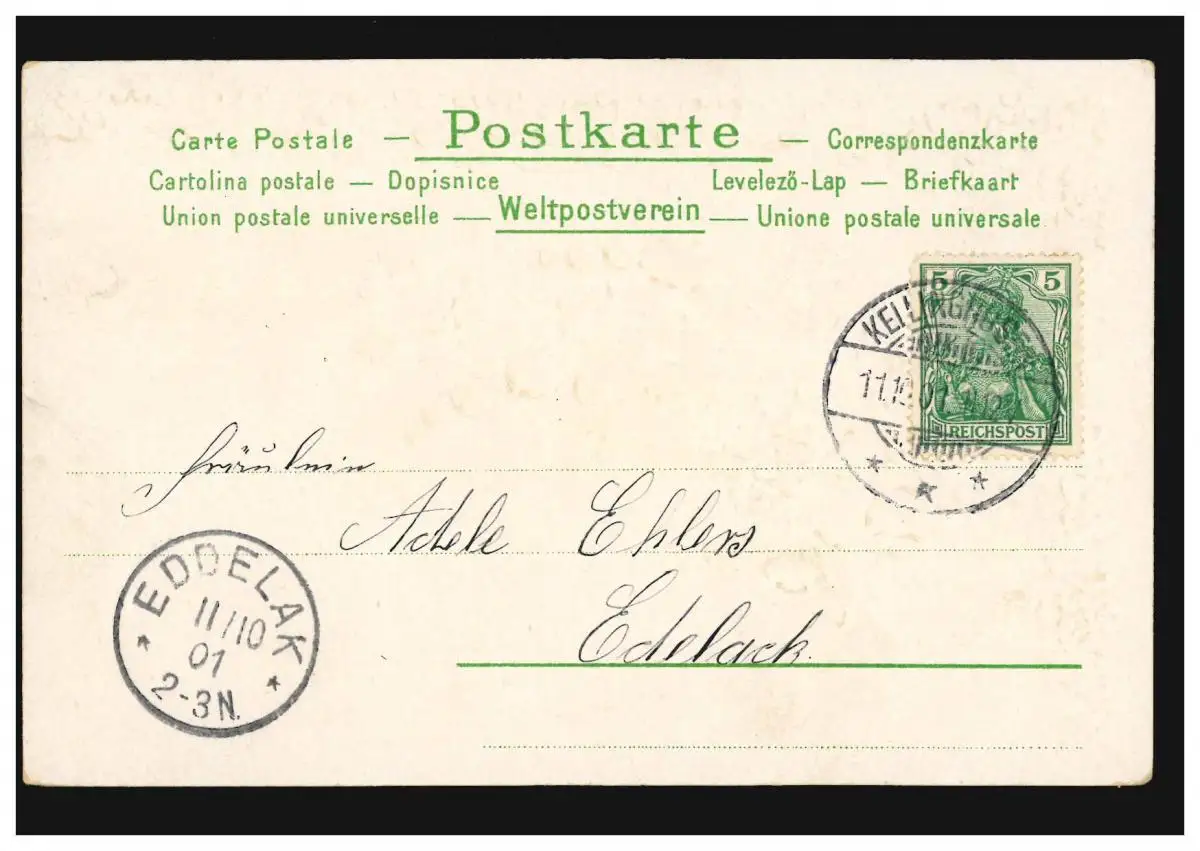 Carte Postale — Postkarte — Correspondenzkarte
Cartolina postale — Dopisnice Levelező-Lap — Briefkaart
Union postale universelle — Weltpostverein — Unione postale universale
5 5
REICHSPOST
11.10.01
Fräulein
Adele Ehlers
Edelack
EDDELAK
11/10
01
2-3N.